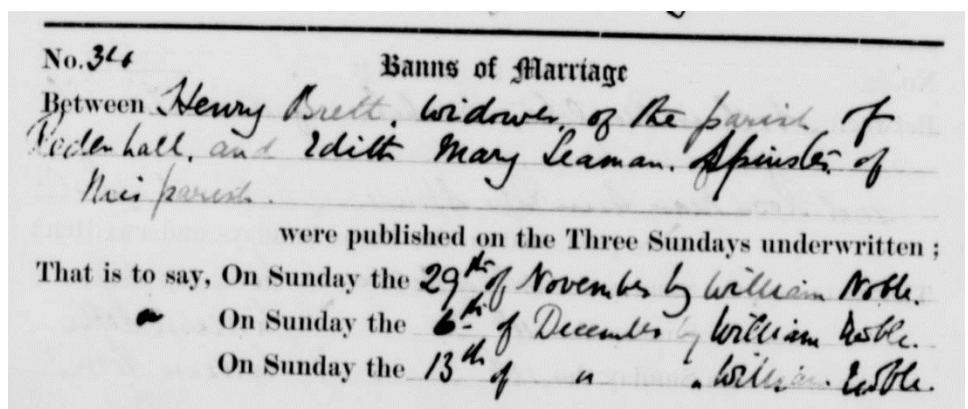 No. 34 Banns of Marriage
Between Henry Brett. Widower. of the parish. of
Redenhall. and Edith Mary Seaman. Spinster. of
this parish.
were published on the Three Sundays underwritten ;
That is to say, On Sunday the 29th of November by William Noble.
On Sunday the 6th of December by William Noble.
On Sunday the 13th of " " William Noble.